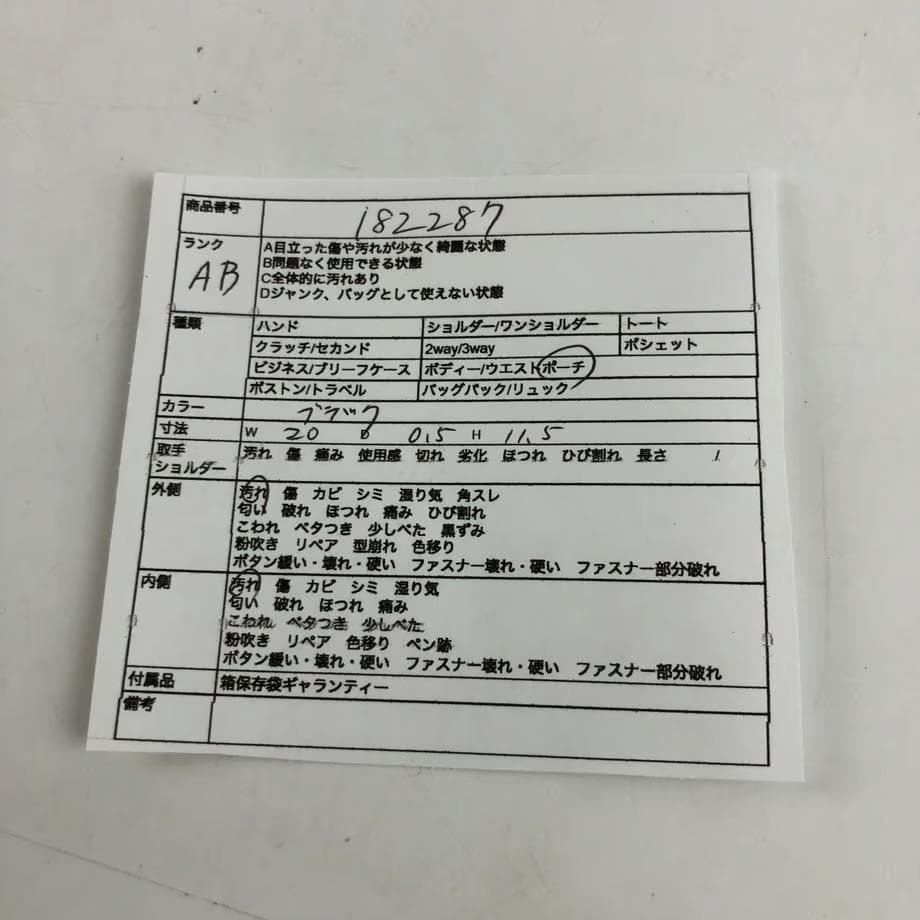 商品番号 182287
ランク A目立った傷や汚れが少なく綺麗な状態
AB B問題なく使用できる状態
C全体的に汚れあり
Dジャンク、バッグとして使えない状態
種類 ハンド ショルダー/ワンショルダー トート
クラッチ/セカンド 2way/3way ポシェット
ビジネス/ブリーフケース ボディー/ウエストポーチ
ボストン/トラベル バッグパック/リュック
カラー ブラック
寸法 W 20 D 0.5 H 11.5
取手 汚れ 傷 痛み 使用感 切れ 劣化 ほつれ ひび割れ 長さ /
ショルダー
外側 汚れ 傷 カビ シミ 湿り気 角スレ
匂い 破れ ほつれ 痛み ひび割れ
こわれ ベタつき 少しべた 黒ずみ
粉吹き リペア 型崩れ 色移り
ボタン緩い・壊れ・硬い ファスナー壊れ・硬い ファスナー部分破れ
内側 汚れ 傷 カビ シミ 湿り気
匂い 破れ ほつれ 痛み
こわれ ベタつき 少しべた
粉吹き リペア 色移り ペン跡
ボタン緩い・壊れ・硬い ファスナー壊れ・硬い ファスナー部分破れ
付属品 箱保存袋ギャランティー
備考